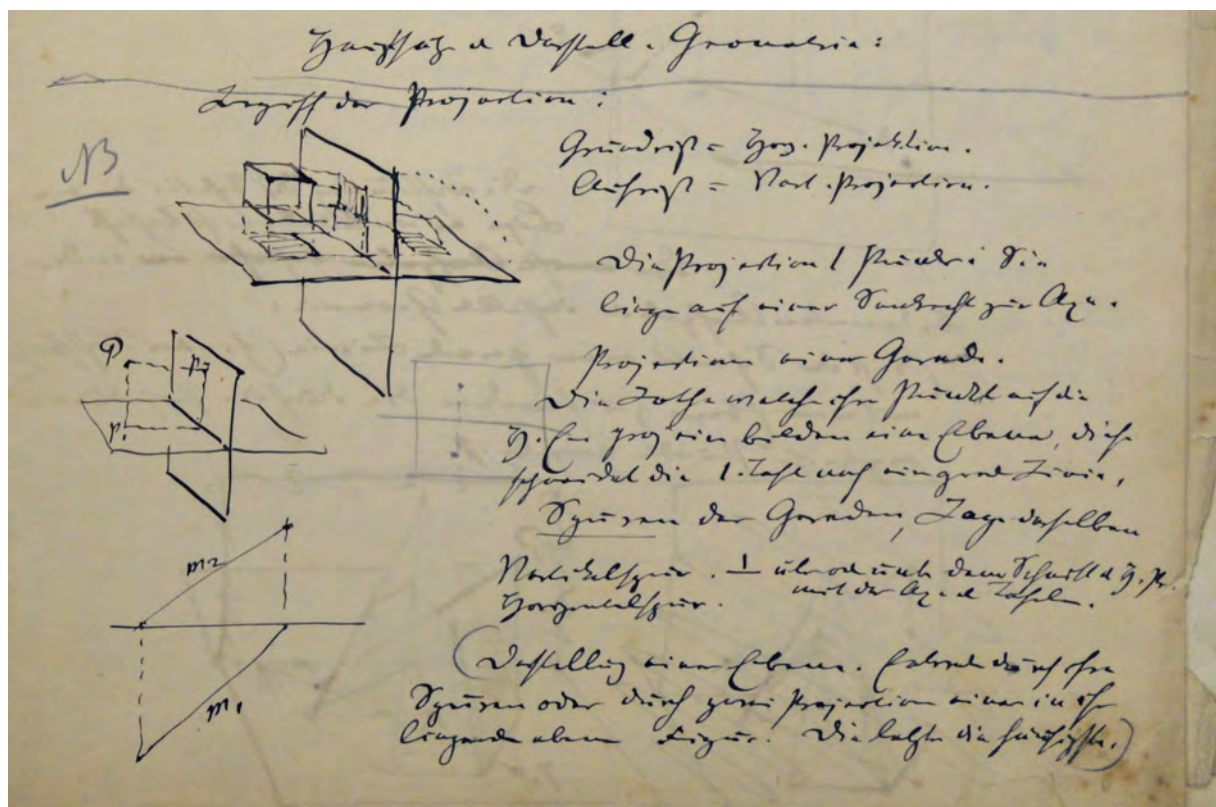 Hauptsätze d. Darstell. Geometrie:
Begriff der Projection:
NB
Grundriß = Hor. Projektion.
Aufriß = Vert. Projection.
Die Projection 1 Punkts:
liege auf einer Senkrecht zur Axe.
P
p
p
Projection einer Gerade.
Die Lothe welche ihre Punkte auf die
H. projeciren bilden eine Ebene, diese
schneidet die 1. Tafel nach ein grad Linie,
Spuren der Geraden, Lage derselben
Vertikalspur. ⊥ über od unt dem Schnitt d H. Pr.
Horizontalspur. mit der Axe d Tafeln.
m2
m1
(Darstellung einer Ebene. Entwed durch ihre
Spuren oder durch zwei Projection einer in ihr
liegende ebene Figur. Die letzte die häufigste.)